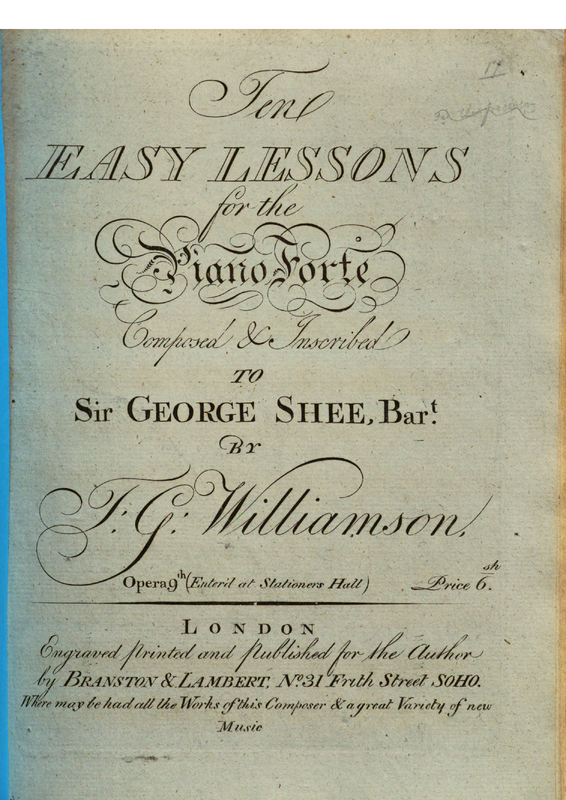 17
Ten
EASY LESSONS
for the
Piano Forte
Composed & Inscribed
TO
Sir GEORGE SHEE, Bar.t
BY
T. G. Williamson.
Opera 9th (Enter'd at Stationers Hall) Price 6.sh
LONDON
Engraved printed and published for the Author
by BRANSTON & LAMBERT, No. 31 Frith Street SOHO.
Where may be had all the Works of this Composer & a great Variety of new
Music